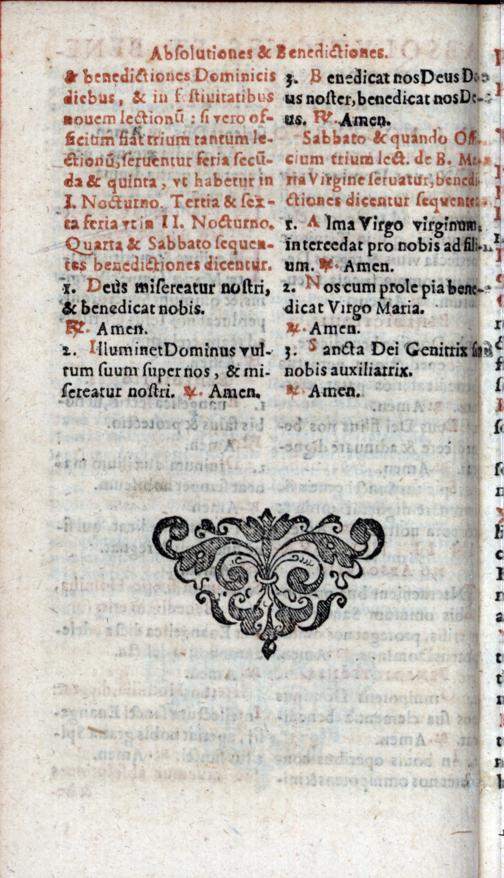 Absolutiones & Benedictiones.
& benedictiones Dominicis
diebus, & in festiuitatibus
nouem lectionū : si vero of-
ficium fiat trium tantum le-
ctionū, seruentur feria secū-
da & quinta, vt habetur in
I. Nocturno. Tertia & sex-
ta feria vt in II. Nocturno.
Quarta & Sabbato sequen-
tes benedictiones dicentur.
1. Deus misereatur nostri,
& benedicat nobis.
℟. Amen.
2. Illuminet Dominus vul-
tum suum super nos, & mi-
sereatur nostri. ℟. Amen.
3. Benedicat nos Deus De-
us noster, benedicat nos De-
us. ℟. Amen.
Sabbato & quando Offi-
cium trium lect. de B. Ma-
ria Virgine seruatur, benedi-
ctiones dicentur sequentes.
1. Alma Virgo virginum,
intercedat pro nobis ad fili-
um. ℟. Amen.
2. Nos cum prole pia bene-
dicat Virgo Maria.
℟. Amen.
3. Sancta Dei Genitrix sit
nobis auxiliatrix.
℟. Amen.